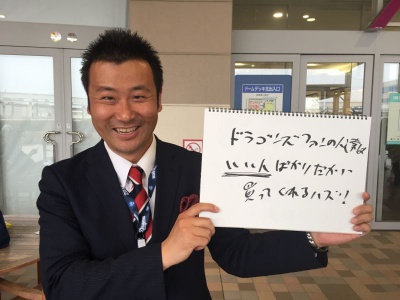 ドームデッキ北出入口
ドラゴンズファンの人達は
いい人ばかりだから
買ってくれるハズ!